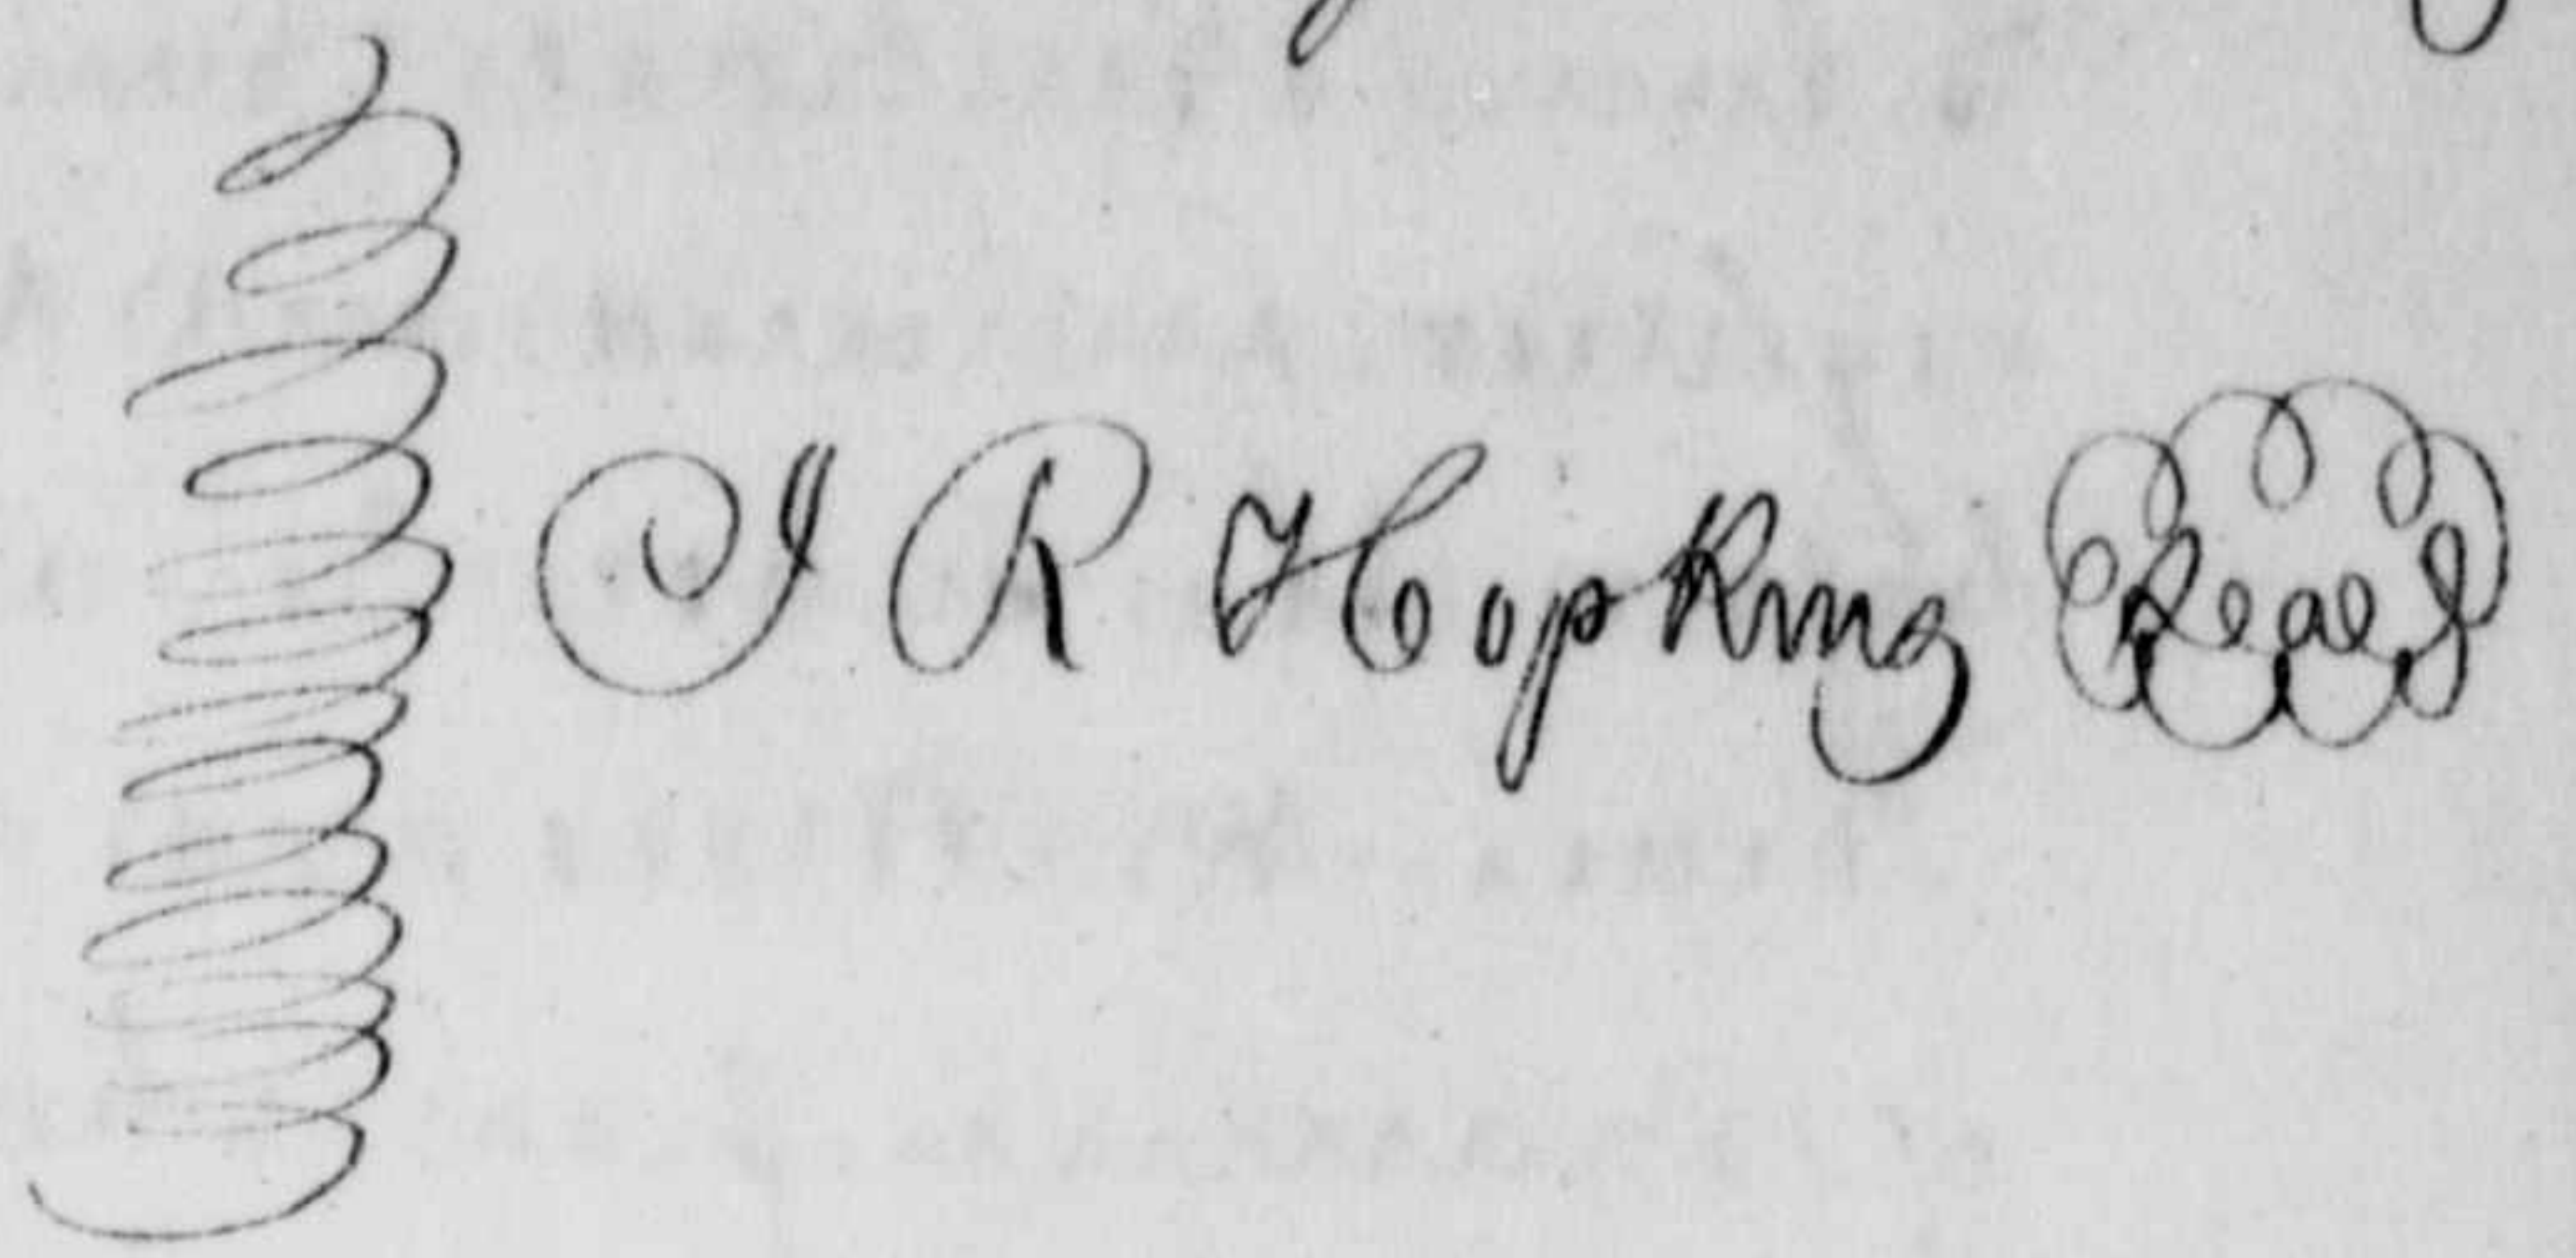 I R Hopkins Seal